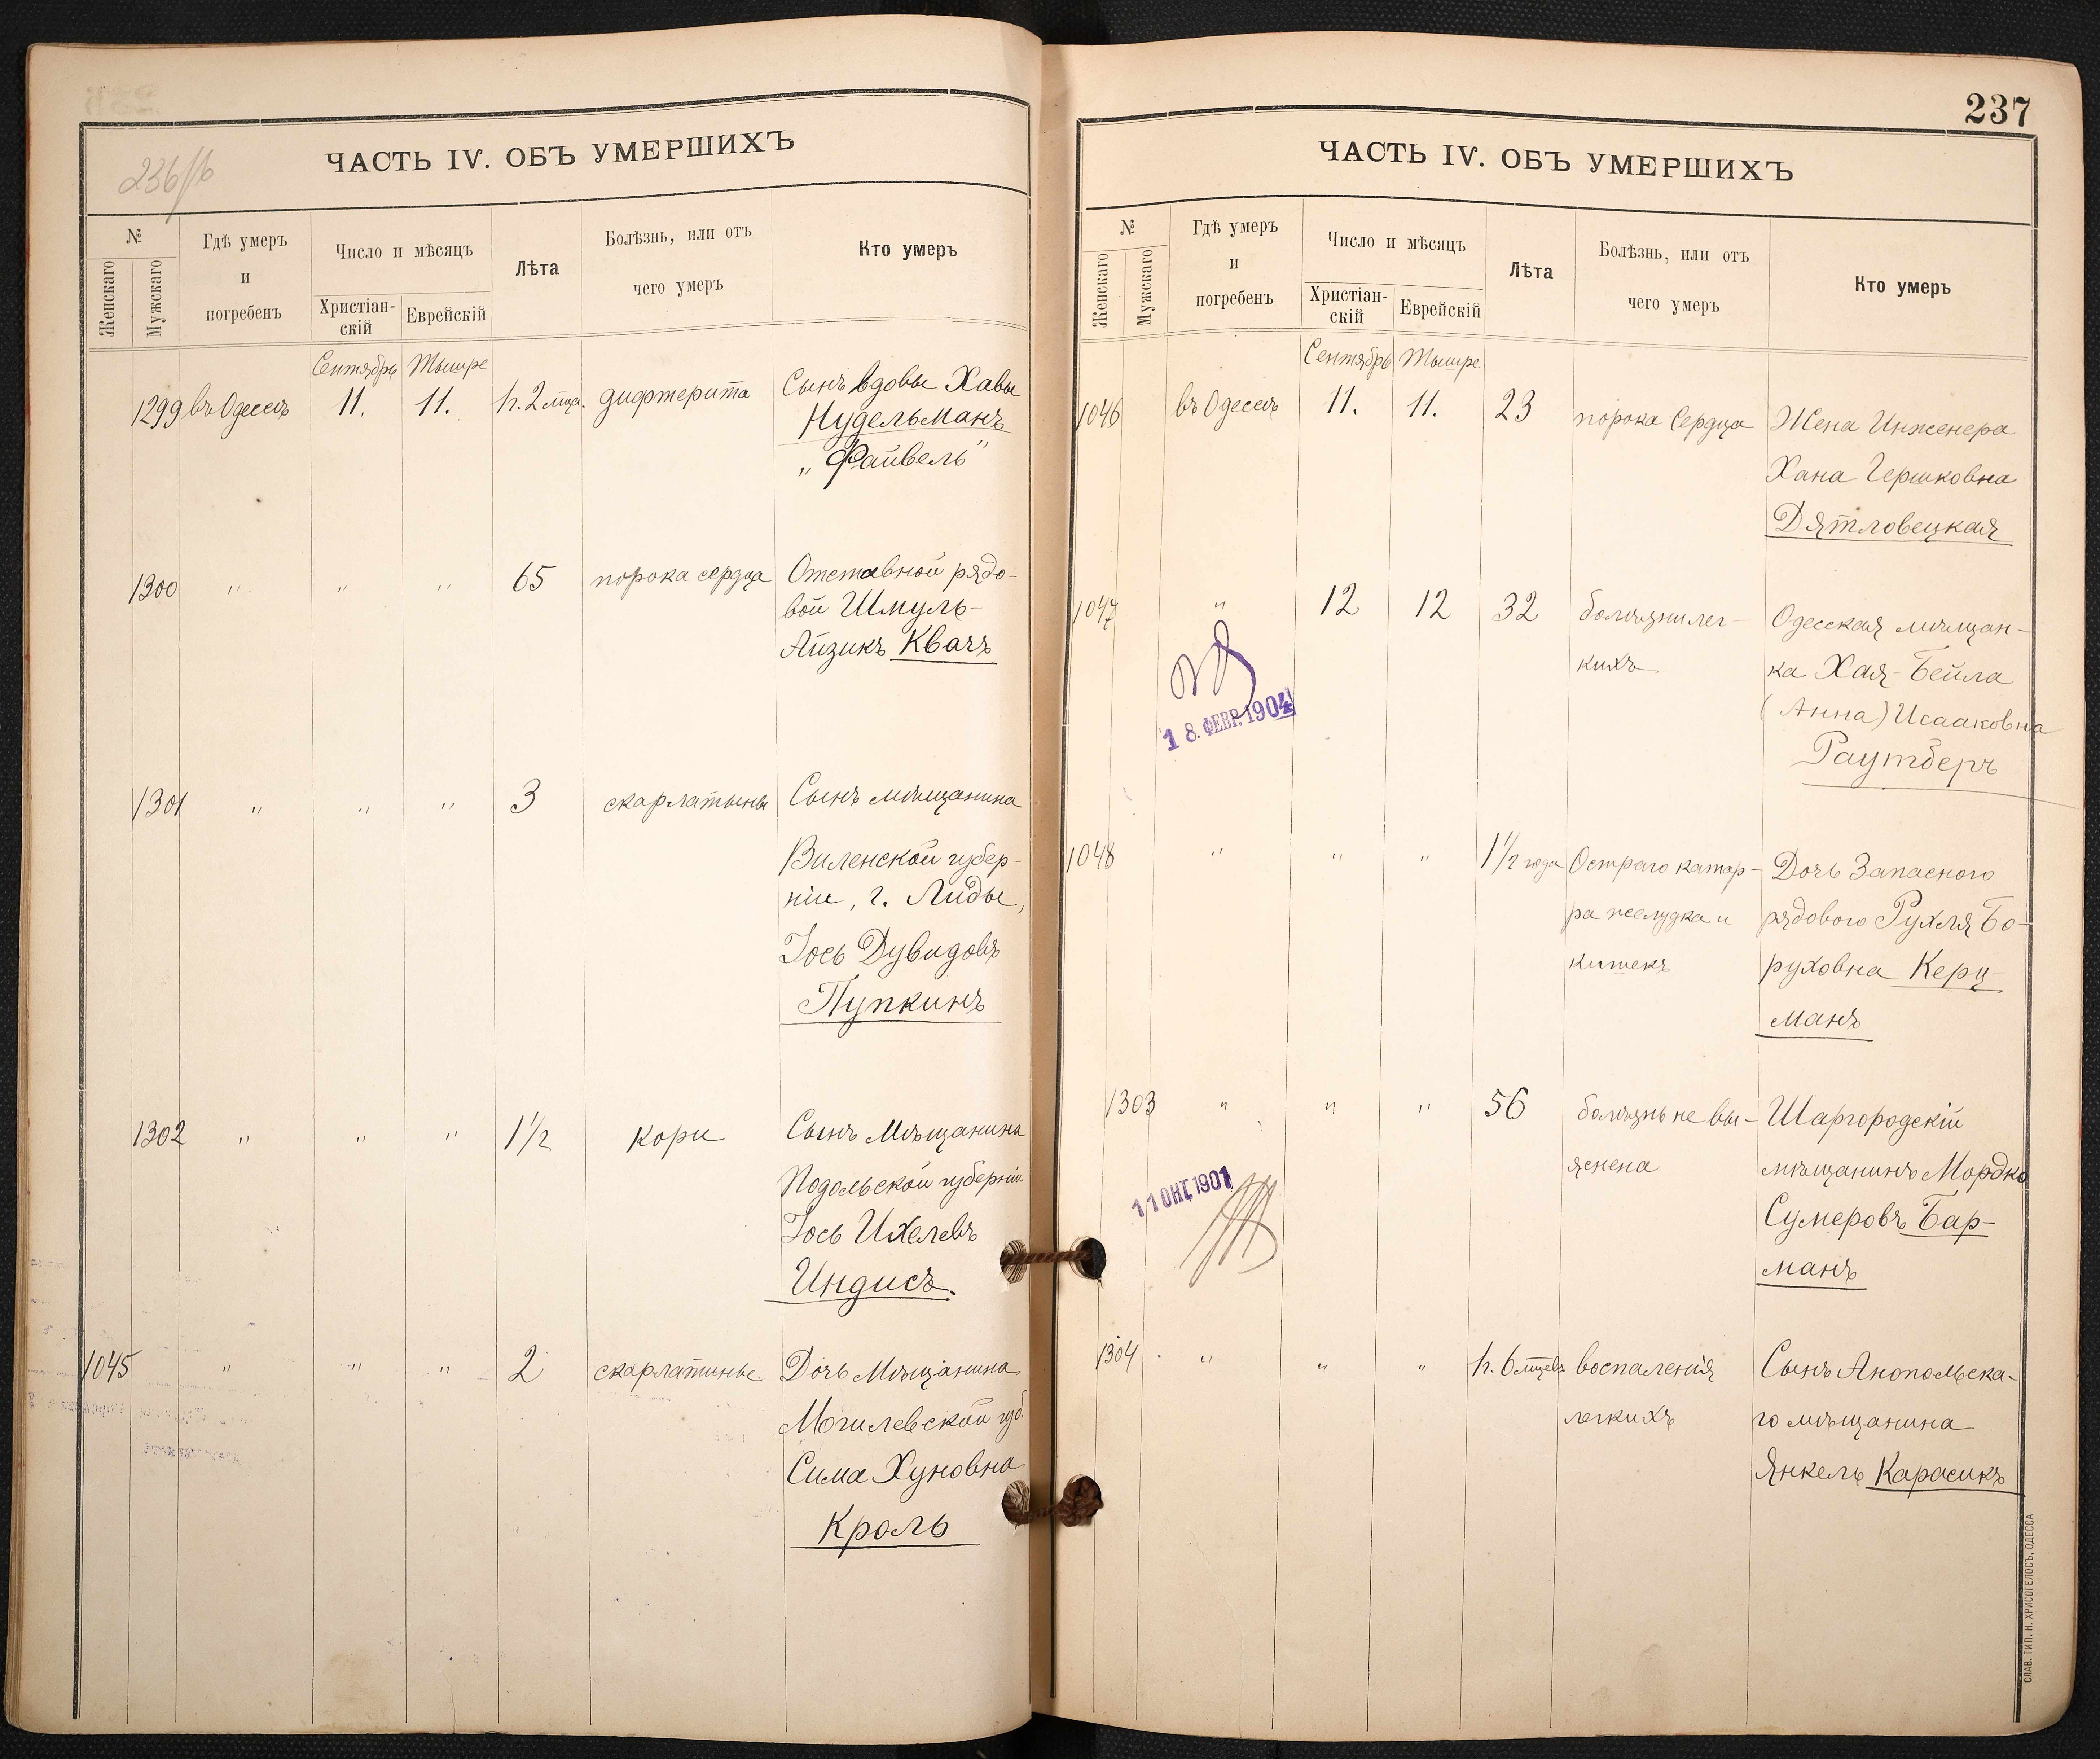 236/б
ЧАСТЬ IV. ОБЪ УМЕРШИХЪ
№
Женскаго
Мужскаго
Гдѣ умеръ
и
погребенъ
Число и мѣсяцъ
Христіан-
скій
Еврейскій
Лѣта
Болѣзнь, или отъ
чего умеръ
Кто умеръ
Сентябрь Тышре
1299 въ Одессѣ 11. 11. 2 мца. дифтерита Сынъ вдовы Хавы
Нудельманъ
„Файвель"
1300 " " " 65 порока сердца Отставной рядо-
вой Шмуль-
Айзикъ Квачъ
1301 " " " 3 скарлатины Сынъ мѣщанина
Виленской губер-
ніи, г. Лиды,
Іось Дувидовъ
Пупкинъ
1302 " " " 1 1/2 кори Сынъ Мѣщанина
Подольской губерніи
Іось Ихелевъ
Индисъ.
1045 " " " 2 скарлатины Дочь Мѣщанина
Могилевской губ.
Сима Хуновна
Кроль
237
ЧАСТЬ IV. ОБЪ УМЕРШИХЪ
№
Женскаго
Мужскаго
Гдѣ умеръ
и
погребенъ
Число и мѣсяцъ
Христіан-
скій
Еврейскій
Лѣта
Болѣзнь, или отъ
чего умеръ
Кто умеръ
Сентябрь Тышре
1046 въ Одессѣ 11. 11. 23 порока Сердца Жена Инженера
Хана Гершковна
Дятловецкая
1047 " 12 12 32 болѣзни лег- Одесская мѣщан-
кихъ ка Хая-Бейла
(Анна) Исааковна
Раутберъ
18. ФЕВР. 1904
1048 " " " 1 1/2 года Остраго катар- Дочь Запасного
ра желудка и рядового Рухля Бо-
кишекъ руховна Керц-
манъ
1303 " " " 56 болѣзнь не вы- Шаргородскій
яснена мѣщанинъ Мордко
Сумеровъ Бар-
манъ
11 ОКТ 1901
1304 " " " 6 мцевъ воспаленія Сынъ Анопольска-
легкихъ го мѣщанина
Янкель Карасикъ
СЛАВ. ТИП. Н. ХРИСОГЕЛОСЪ, ОДЕССА